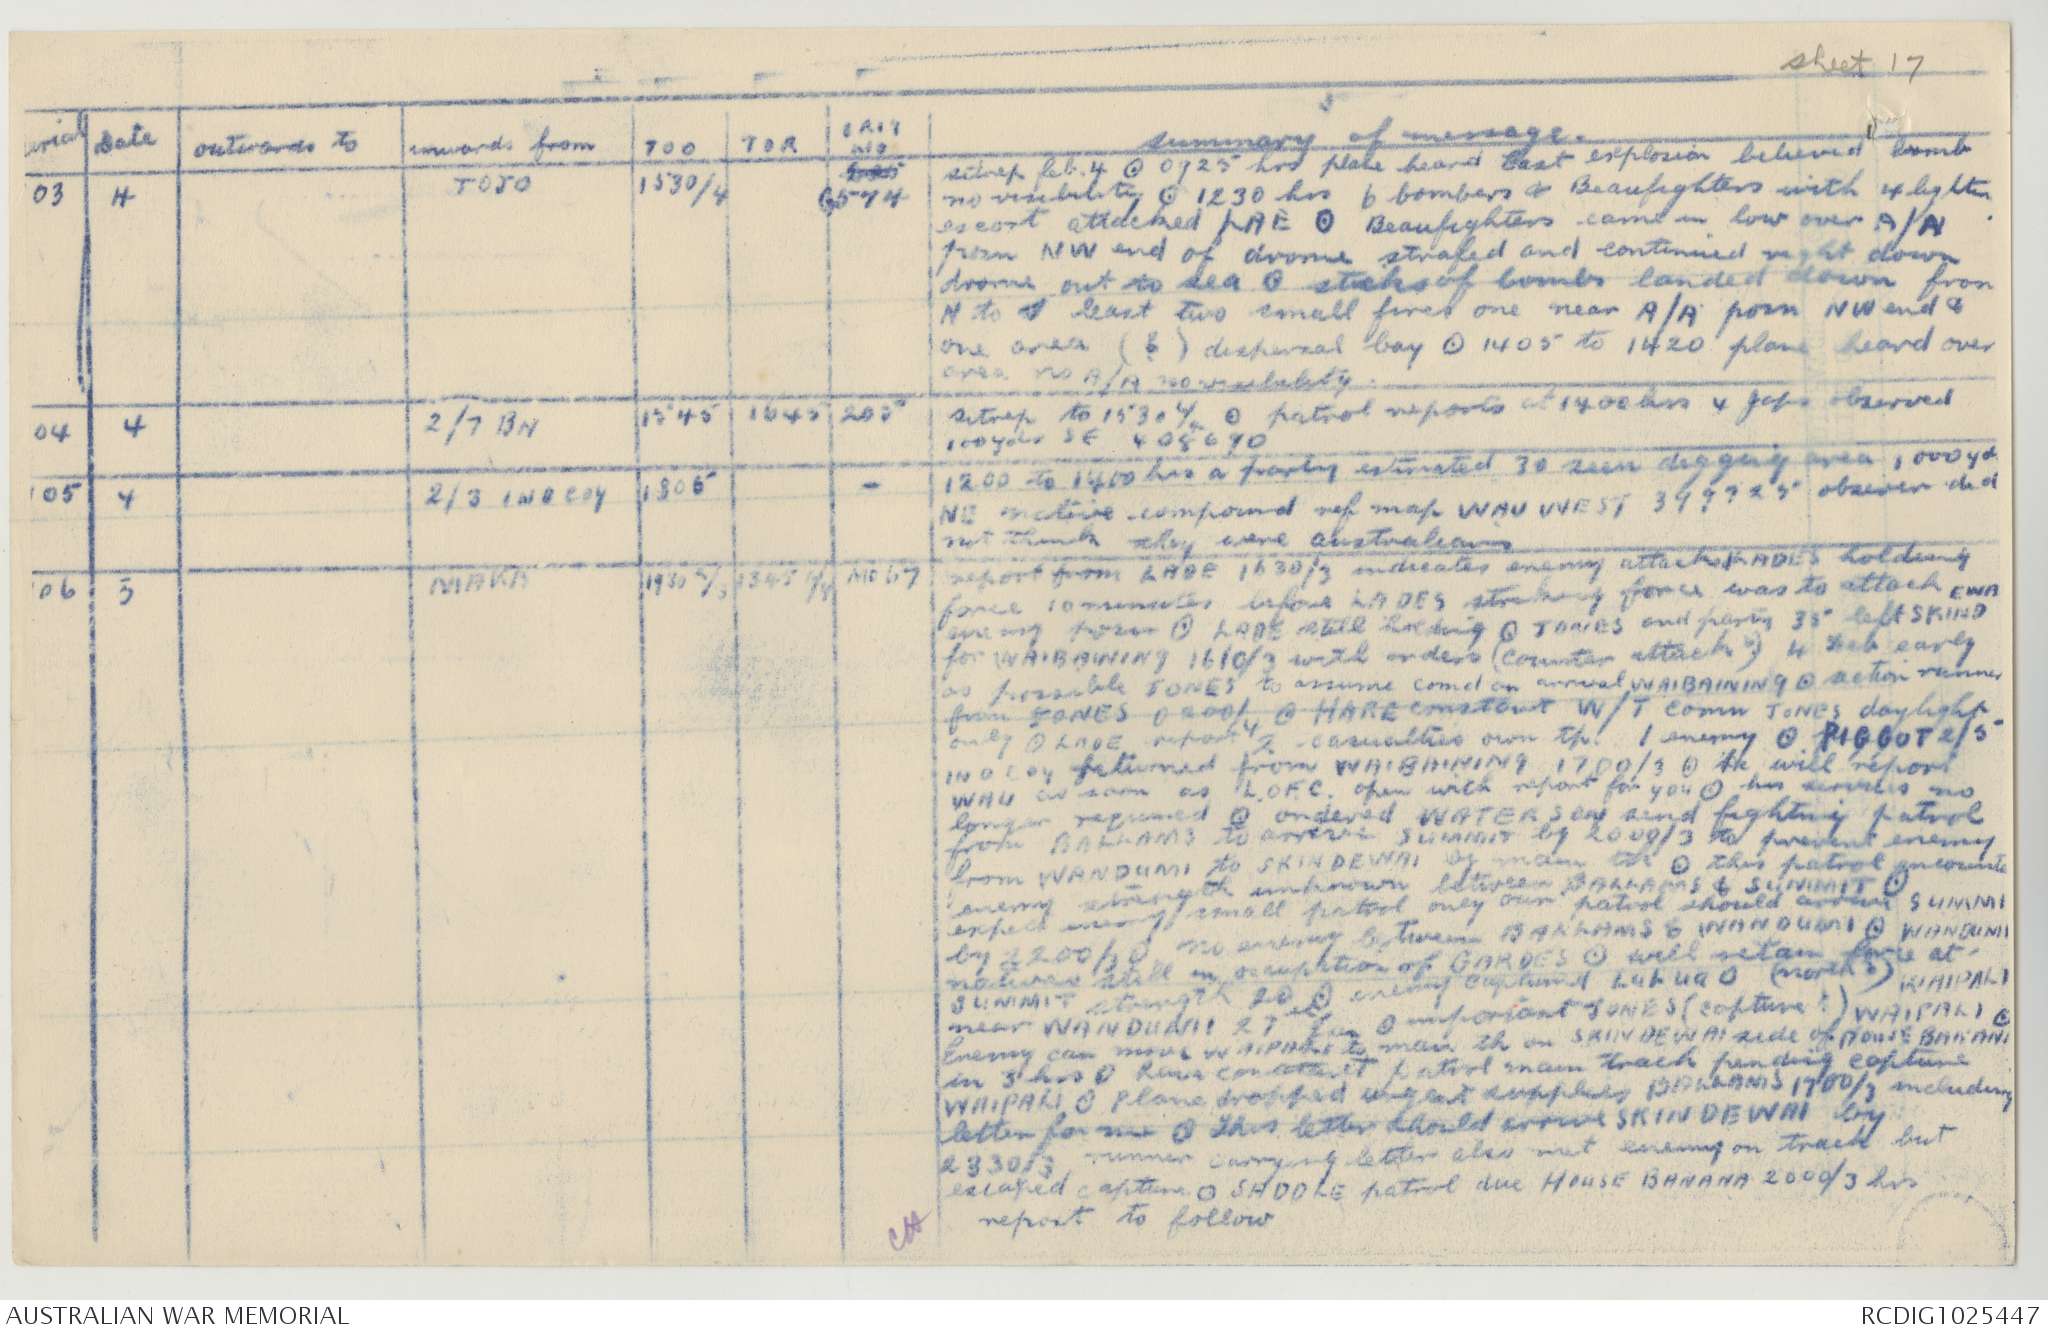 sheet 17
erial Date outwards to inwards from TOO TOR ORIG NO summary of message.
03 4 TOJO 1530/4 G574 sitrep feb. 4 @ 0925 hrs plane heard East explosion believed bomb
no visibility @ 1230 hrs 6 bombers & Beaufighters with 4 fighter
escort attacked LAE ⊙ Beaufighters came in low over A/A
posn NW end of drome strafed and continued right down
drome out to sea ⊙ sticks of bombs landed down from
N to S least two small fires one near A/A posn NW end &
one area ( ? ) dispersal bay ⊙ 1405 to 1420 plane heard over
area no A/A no visibility.
04 4 2/7 BN 1545 1645 205 sitrep to 1530/4 ⊙ patrol reports at 1400 hrs 4 Japs observed
100 yds SE 408690
05 4 2/3 IND COY 1805 - 1200 to 1400 hrs a party estimated 30 seen digging area 1000 yds
NE native compound ref map WAU WEST 399925 observer did
not think they were australians
06 5 MAKA 1930 1345 MO67 report from LADE 1630/3 indicates enemy attack LADES holding
force 10 minutes before LADES striking force was to attack
enemy posn ⊙ LADE still holding ⊙ JONES and party 35 left SKINDEWA
for WAIBAINING 1610/3 with orders (counter attack ?) 4 Feb early
as possible JONES to assume comd on arrival WAIBAINING ⊙ action runner
from JONES 0200/4 ⊙ HARE constant W/T comn JONES daylight
only ⊙ LADE reports 2 casualties own tps. 1 enemy ⊙ PIGGOT 2/5
IND COY returned from WAIBAINING 1700/3 ⊙ He will report
WAU as soon as L.OF.C. open with report for you ⊙ his services no
longer required ⊙ ordered WATERSON send fighting patrol
from BALLAMS to arrive SUMMIT by 2000/3 to prevent enemy
from WANDUMI to SKINDEWAI by main tk ⊙ this patrol encounte
enemy strength unknown between BALLAMS & SUMMIT ⊙
expect enemy small patrol only our patrol should arrive SUMMI
by 2200/3 ⊙ no enemy between BALLAMS & WANDUMI ⊙ WANDUMI
natives still in occupation of GARDES ⊙ will retain force at
SUMMIT strength 20 ⊙ enemy captured LULUG ⊙ (north ?) WAIPALI
near WANDUMI 27 Jan ⊙ important JONES (capture ?) WAIPALI ⊙
Enemy can move WAIPALI to main tk on SKINDEWAI side of HOUSE BANANA
in 3 hrs ⊙ have constant patrol main track pending capture
WAIPALI ⊙ Plane dropped urgent supplies BALLAMS 1700/3 including
letter for me ⊙ This letter should arrive SKINDEWAI by
2330/3 runner carrying letter also met enemy on track but
escaped capture ⊙ SADDLE patrol due HOUSE BANANA 2000/3 hrs
report to follow
AUSTRALIAN WAR MEMORIAL
RCDIG1025447